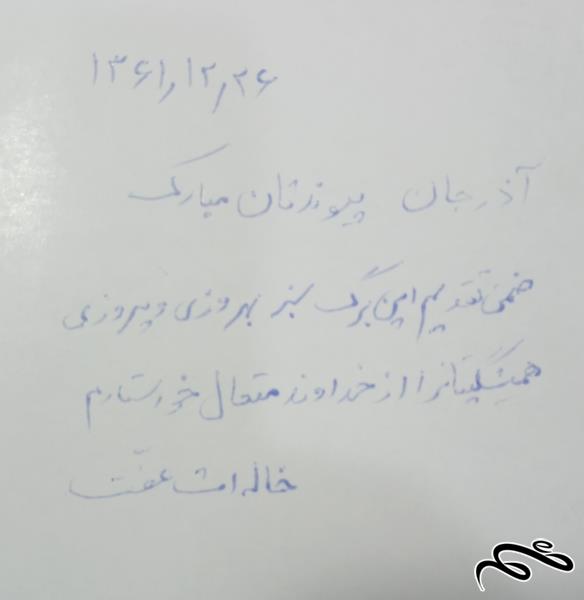 ۱۳۶۱٫۱۲٫۲۶
آذر جان پیوندتان مبارک
ضمن تقدیم این برگ سبز بهروزی و پیروزی
همیشگیتانرا از خداوند متعال خواستارم
خاله ات عفّت